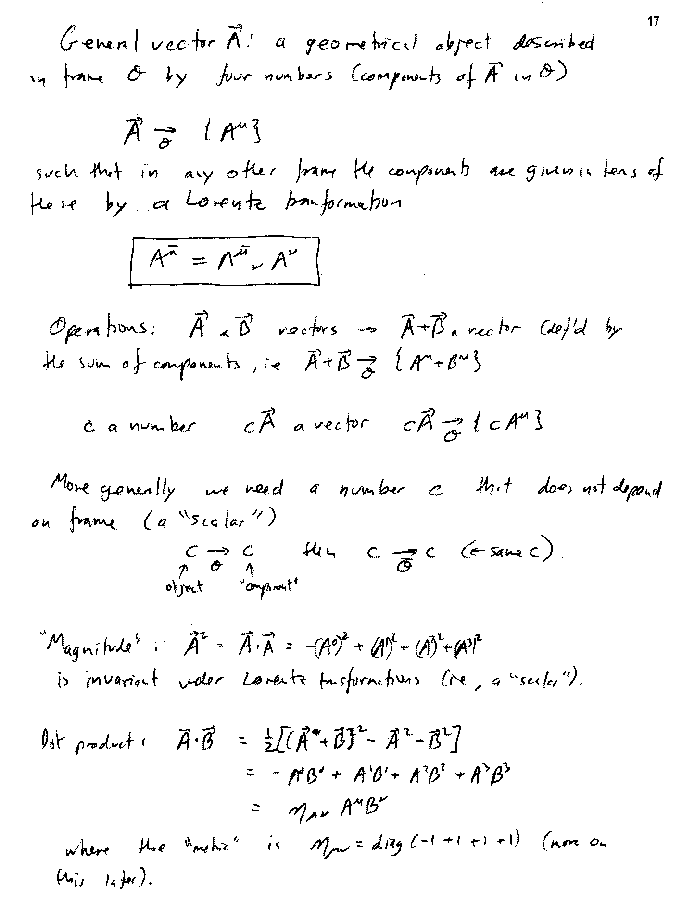 17
General vector A⃗: a geometrical object described
in frame O by four numbers (components of A⃗ in O)
A⃗ →_O {A^μ}
such that in any other frame the components are given in terms of
these by a Lorentz transformation
A^μ̄ = Λ^μ̄_ν A^ν
Operations: A⃗ & B⃗ vectors → A⃗+B⃗ a vector (def'd by
the sum of components, ie A⃗+B⃗ →_O {A^μ+B^μ}
c a number cA⃗ a vector cA⃗ →_O {cA^μ}
More generally we need a number c that does not depend
on frame (a "scalar")
c →_O c then c →_Ō c (← same c).
↑ ↑
object "component"
"Magnitude": A⃗² = A⃗·A⃗ = -(A⁰)² + (A¹)² + (A²)² + (A³)²
is invariant under Lorentz transformations (ie, a "scalar").
Dot product: A⃗·B⃗ = ½[(A⃗+B⃗)² - A⃗² - B⃗²]
= - A⁰B⁰ + A¹B¹ + A²B² + A³B³
= η_μν A^μ B^ν
where the "metric" is η_μν = diag (-1 +1 +1 +1) (more on
this later).